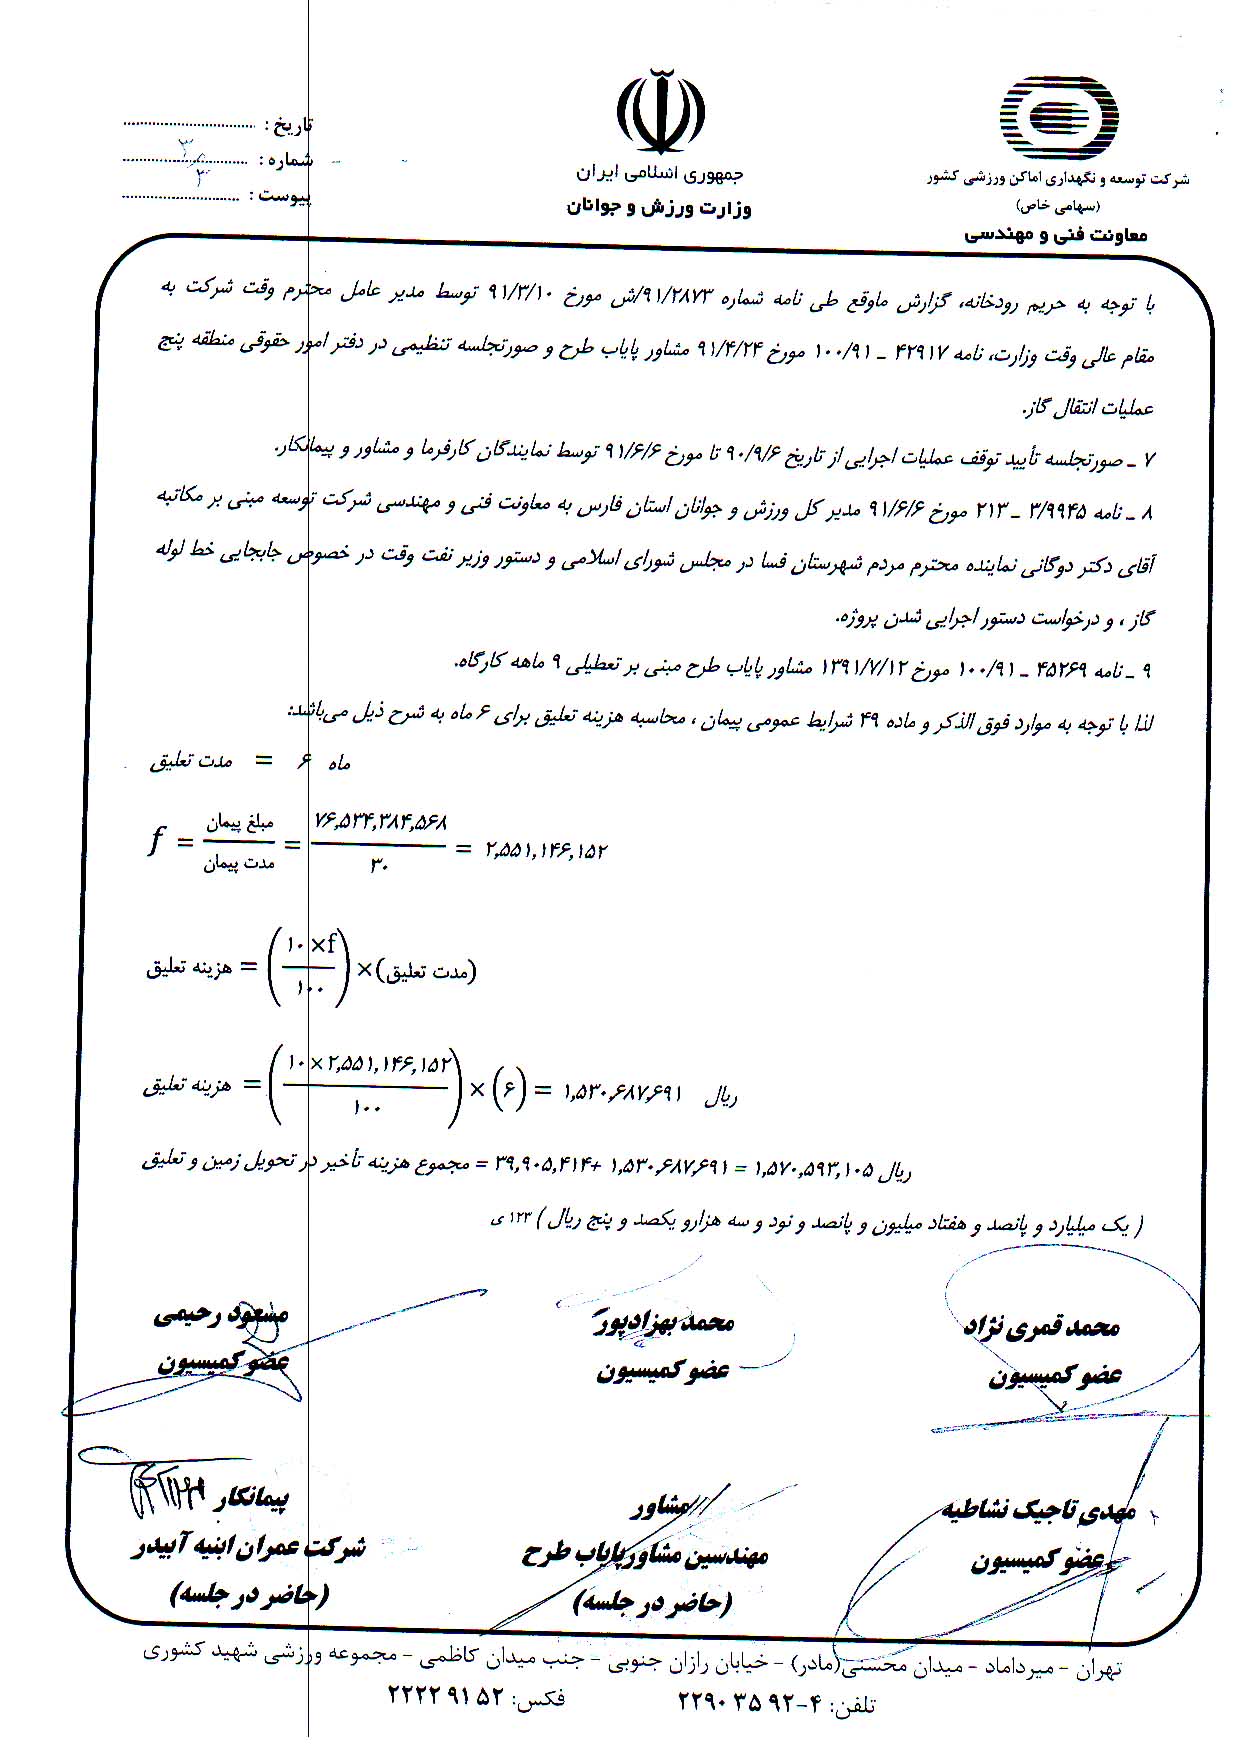 شرکت توسعه و نگهداری اماکن ورزشی کشور
(سهامی خاص)
معاونت فنی و مهندسی
جمهوری اسلامی ایران
وزارت ورزش و جوانان
تاریخ :
شماره :
پیوست :
با توجه به حریم رودخانه، گزارش ماوقع طی نامه شماره ۹۱/۲۸۷۳/ش مورخ ۹۱/۳/۱۰ توسط مدیر عامل محترم وقت شرکت به
مقام عالی وقت وزارت، نامه ۴۲۹۱۷ ـ ۱۰۰/۹۱ مورخ ۹۱/۴/۲۴ مشاور پایاب طرح و صورتجلسه تنظیمی در دفتر امور حقوقی منطقه پنج
عملیات انتقال گاز.
۷ ـ صورتجلسه تأیید توقف عملیات اجرایی از تاریخ ۹۰/۹/۶ تا مورخ ۹۱/۶/۶ توسط نمایندگان کارفرما و مشاور و پیمانکار.
۸ ـ نامه ۳/۹۹۴۵ ـ ۲۱۳ مورخ ۹۱/۶/۶ مدیر کل ورزش و جوانان استان فارس به معاونت فنی و مهندسی شرکت توسعه مبنی بر مکاتبه
آقای دکتر دوگانی نماینده محترم مردم شهرستان فسا در مجلس شورای اسلامی و دستور وزیر نفت وقت در خصوص جابجایی خط لوله
گاز ، و درخواست دستور اجرایی شدن پروژه.
۹ ـ نامه ۴۵۲۶۹ ـ ۱۰۰/۹۱ مورخ ۱۳۹۱/۷/۱۲ مشاور پایاب طرح مبنی بر تعطیلی ۹ ماهه کارگاه.
لذا با توجه به موارد فوق الذکر و ماده ۴۹ شرایط عمومی پیمان ، محاسبه هزینه تعلیق برای ۶ ماه به شرح ذیل می‌باشد:
مدت تعلیق = ۶ ماه
f = مبلغ پیمان / مدت پیمان = ۷۶,۵۳۴,۳۸۴,۵۶۸ / ۳۰ = ۲,۵۵۱,۱۴۶,۱۵۲
هزینه تعلیق = (۱۰×f / ۱۰۰) × (مدت تعلیق)
هزینه تعلیق = (۱۰×۲,۵۵۱,۱۴۶,۱۵۲ / ۱۰۰) × (۶) = ۱,۵۳۰,۶۸۷,۶۹۱ ریال
مجموع هزینه تأخیر در تحویل زمین و تعلیق = ۳۹,۹۰۵,۴۱۴+ ۱,۵۳۰,۶۸۷,۶۹۱ = ۱,۵۷۰,۵۹۳,۱۰۵ ریال
( یک میلیارد و پانصد و هفتاد میلیون و پانصد و نود و سه هزارو یکصد و پنج ریال ) ۱۲۳ ی
محمد قمری نژاد
عضو کمیسیون
محمد بهزادپور
عضو کمیسیون
مسعود رحیمی
عضو کمیسیون
مهدی تاجیک نشاطیه
عضو کمیسیون
مشاور
مهندسین مشاور پایاب طرح
(حاضر در جلسه)
پیمانکار
شرکت عمران ابنیه آبیدر
(حاضر در جلسه)
تهران - میرداماد - میدان محسنی(مادر) - خیابان رازان جنوبی - جنب میدان کاظمی - مجموعه ورزشی شهید کشوری
تلفن: ۴-۹۲ ۳۵ ۲۲۹۰ فکس: ۵۲ ۹۱ ۲۲۲۲